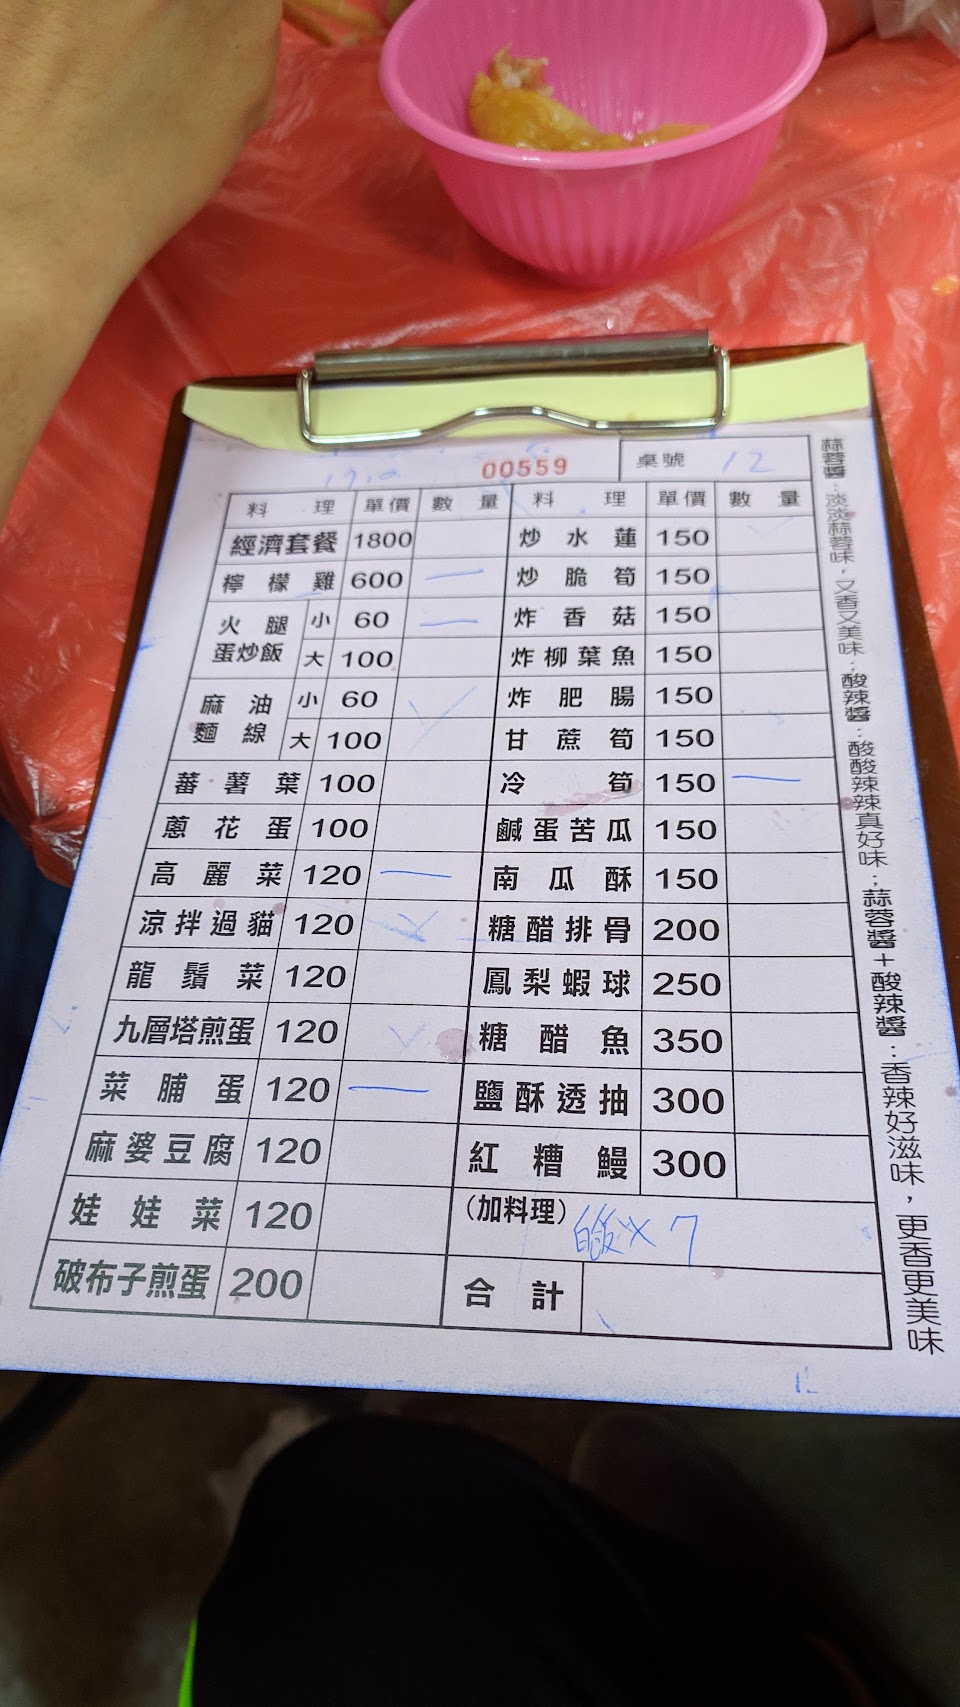 00559
桌號 12
料理 單價 數量 料理 單價 數量
經濟套餐 1800 炒水蓮 150
檸檬雞 600 一 炒脆筍 150
火腿蛋炒飯 小 60 一 炸香菇 150
大 100 炸柳葉魚 150
麻油麵線 小 60 炸肥腸 150
大 100 甘蔗筍 150
蕃薯葉 100 冷筍 150 一
蔥花蛋 100 鹹蛋苦瓜 150
高麗菜 120 一 南瓜酥 150
涼拌過貓 120 糖醋排骨 200
龍鬚菜 120 鳳梨蝦球 250
九層塔煎蛋 120 糖醋魚 350
菜脯蛋 120 一 鹽酥透抽 300
麻婆豆腐 120 紅糟鰻 300
娃娃菜 120 (加料理) 白飯x7
破布子煎蛋 200 合計
蒜蓉醬：淡淡蒜蓉味，又香又美味；酸辣醬：酸酸辣辣真好味；蒜蓉醬+酸辣醬：香辣好滋味，更香更美味